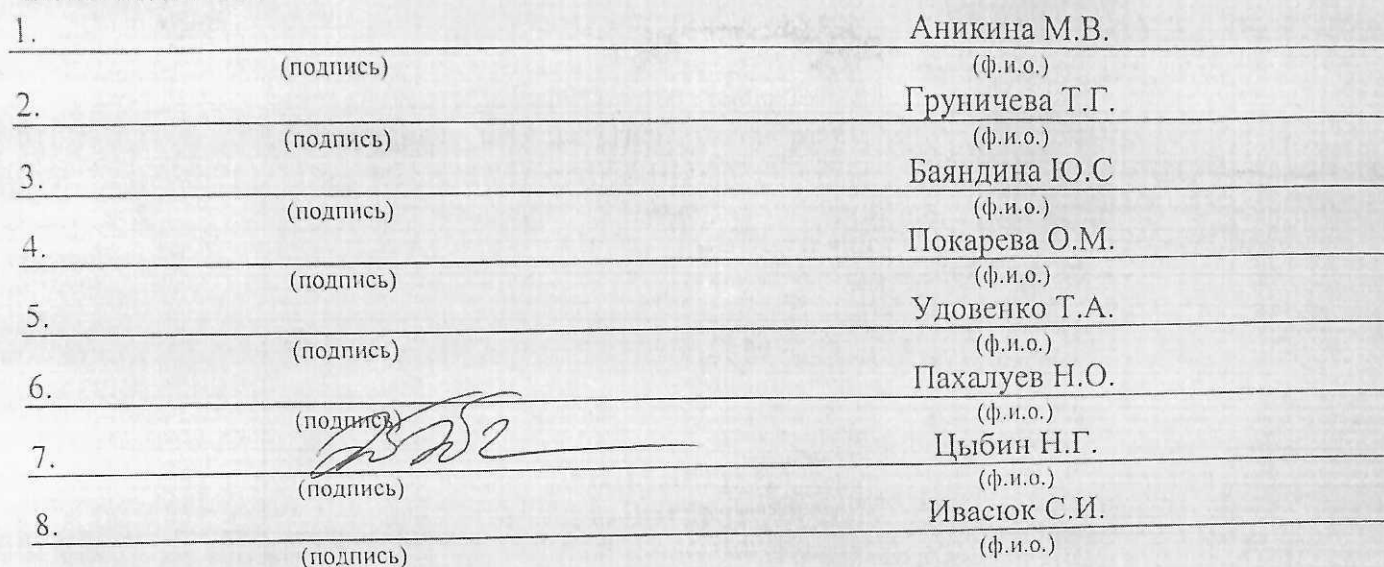 1. Аникина М.В.
(подпись) (ф.и.о.)
2. Груничева Т.Г.
(подпись) (ф.и.о.)
3. Баяндина Ю.С
(подпись) (ф.и.о.)
4. Покарева О.М.
(подпись) (ф.и.о.)
5. Удовенко Т.А.
(подпись) (ф.и.о.)
6. Пахалуев Н.О.
(подпись) (ф.и.о.)
7. Цыбин Н.Г.
(подпись) (ф.и.о.)
8. Ивасюк С.И.
(подпись) (ф.и.о.)